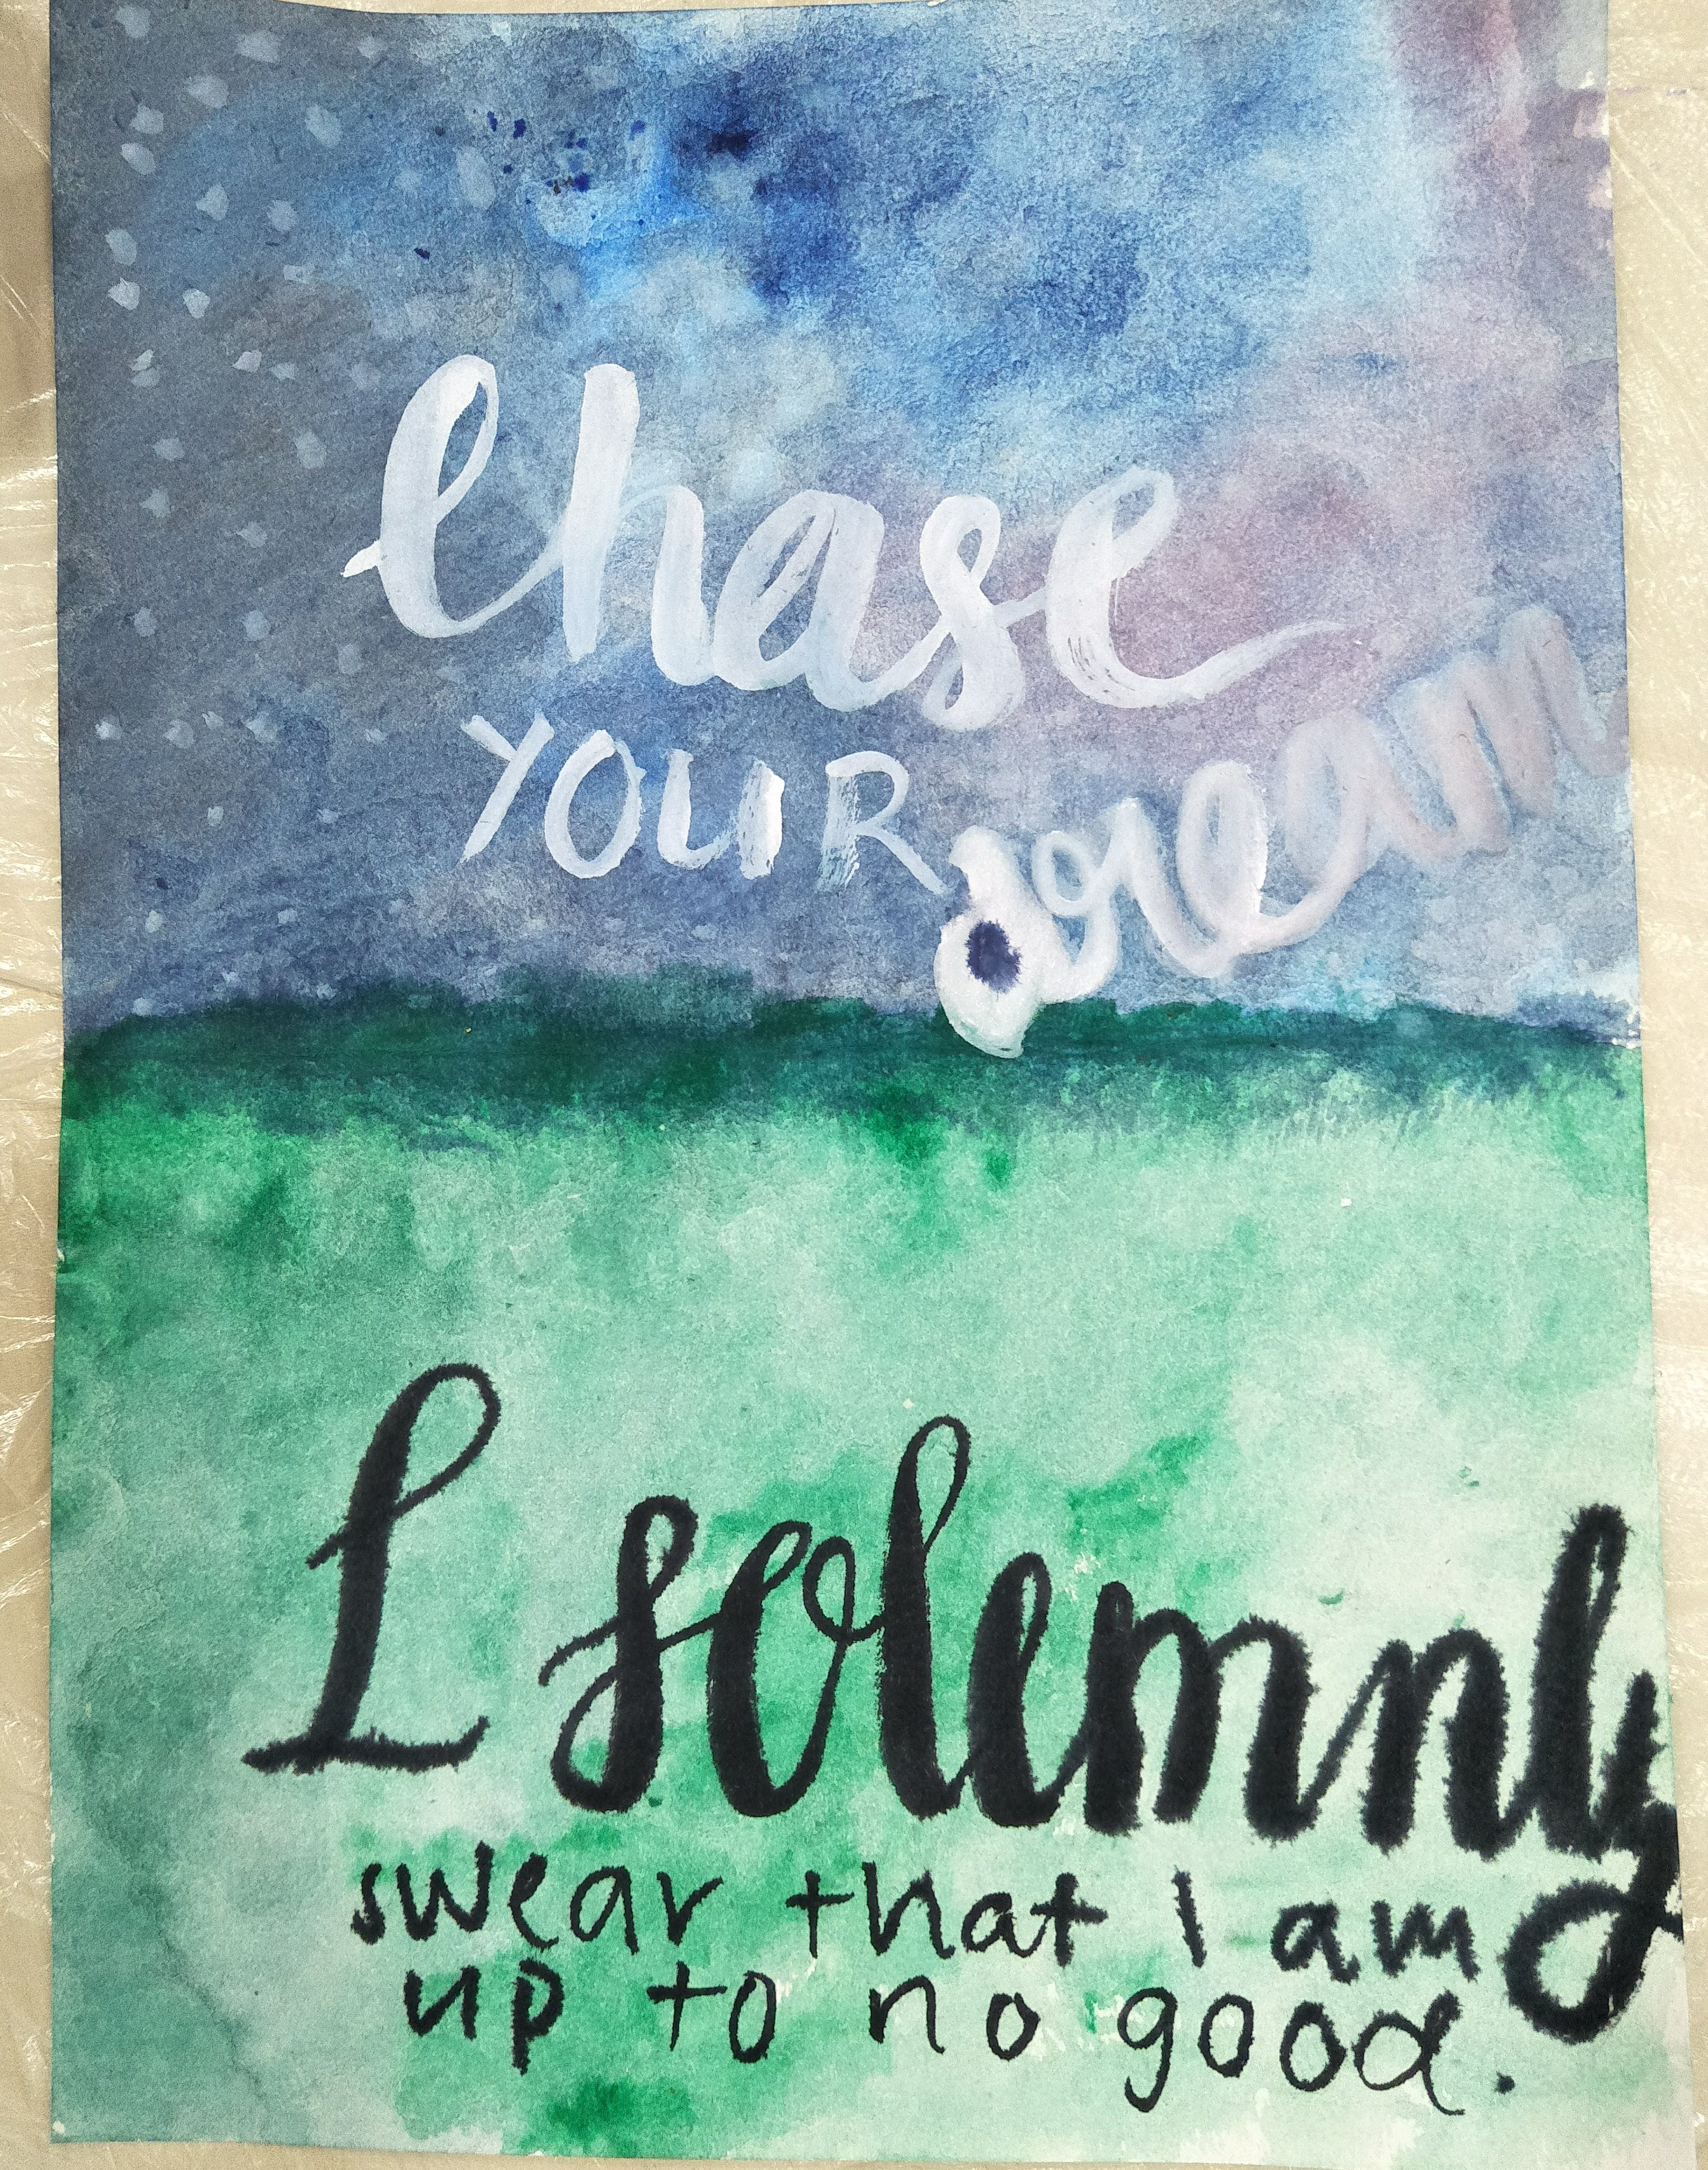 Chase
YOUR dream
I solemnly
swear that I am
up to no good.